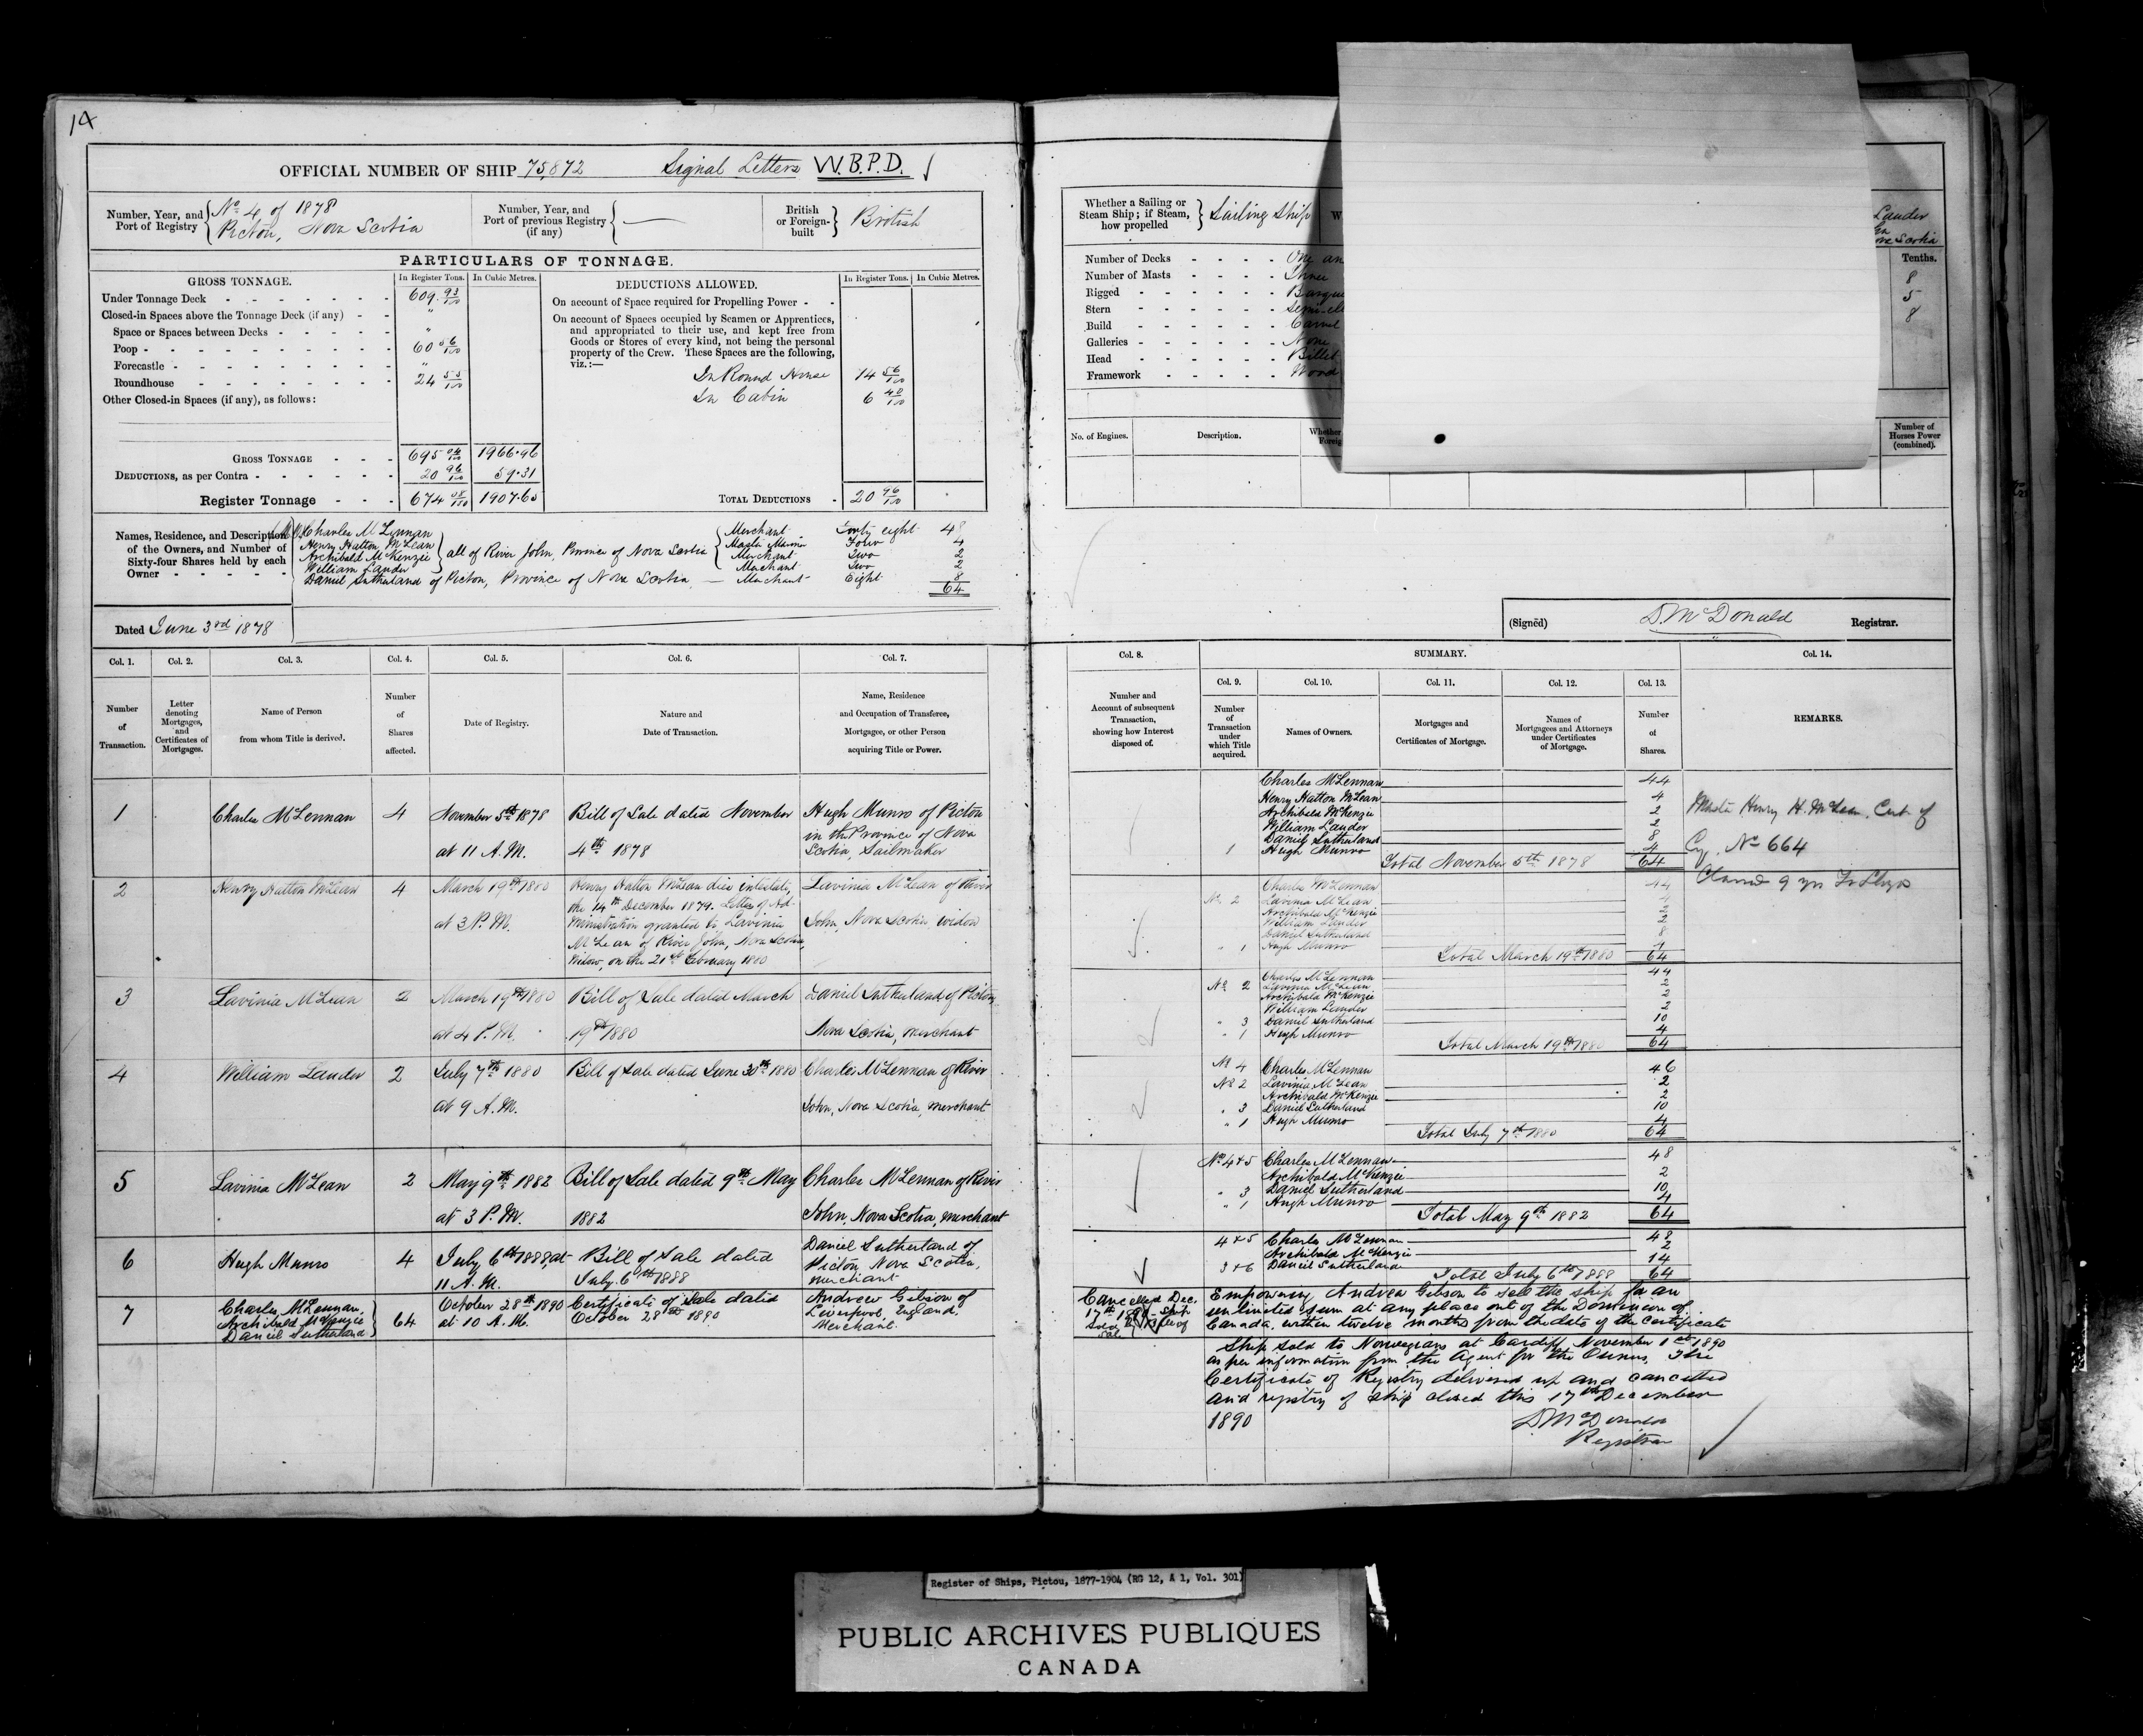 14
OFFICIAL NUMBER OF SHIP 75,872 Signal Letters W.B.P.D.
Number, Year, and Port of Registry { No 4 of 1878
Pictou, Nova Scotia
Number, Year, and Port of previous Registry (if any) { —
British or Foreign-built } British
PARTICULARS OF TONNAGE.
GROSS TONNAGE. In Register Tons. In Cubic Metres.
Under Tonnage Deck 609. 93/100
Closed-in Spaces above the Tonnage Deck (if any) "
Space or Spaces between Decks "
Poop 60 06/100
Forecastle "
Roundhouse 24 55/100
Other Closed-in Spaces (if any), as follows:
GROSS TONNAGE 695 04/100 1966.96
DEDUCTIONS, as per Contra 20 96/100 59.31
Register Tonnage 674 08/100 1907.65
DEDUCTIONS ALLOWED. In Register Tons. In Cubic Metres.
On account of Space required for Propelling Power
On account of Spaces occupied by Seamen or Apprentices,
and appropriated to their use, and kept free from
Goods or Stores of every kind, not being the personal
property of the Crew. These Spaces are the following,
viz.:—
In Round House 14 56/100
In Cabin 6 40/100
TOTAL DEDUCTIONS 20 96/100
Names, Residence, and Description of the Owners, and Number of Sixty-four Shares held by each Owner
Charles McLennan Merchant Forty eight 48
Henry Hatton McLean Master Mariner Four 4
Archibald McKenzie } all of River John, Province of Nova Scotia { Merchant Two 2
William Lauder Merchant Two 2
Daniel Sutherland of Pictou, Province of Nova Scotia — Merchant Eight 8
64
Dated June 3rd 1878
Whether a Sailing or Steam Ship; if Steam, how propelled } Sailing Ship
Lauder
Scotia
Number of Decks One an
Number of Masts Three
Rigged Barque
Stern Semi-el
Build Carvel
Galleries None
Head Billet
Framework Wood
Tenths.
8
5
8
No. of Engines. Description. Whether Foreig Number of Horses Power (combined).
(Signed) D. McDonald Registrar.
Col. 1. Col. 2. Col. 3. Col. 4. Col. 5. Col. 6. Col. 7.
Number of Transaction.
Letter denoting Mortgages, and Certificates of Mortgages.
Name of Person from whom Title is derived.
Number of Shares affected.
Date of Registry.
Nature and Date of Transaction.
Name, Residence and Occupation of Transferee, Mortgagee, or other Person acquiring Title or Power.
1 Charles McLennan 4 November 5th 1878 Bill of Sale dated November Hugh Munro of Pictou
in the Province of Nova
at 11 A.M. 4th 1878 Scotia, Sailmaker
2 Henry Hatton McLean 4 March 19th 1880 Henry Hatton McLean died intestate, Lavinia McLean of River
the 14th December 1879. Letters of Ad-
at 3 P.M. ministration granted to Lavinia John, Nova Scotia, widow
McLean of River John, Nova Scotia,
Widow, on the 21st February 1880
3 Lavinia McLean 2 March 19th 1880 Bill of Sale dated March Daniel Sutherland of Pictou
at 4 P.M. 19th 1880 Nova Scotia, merchant
4 William Lauder 2 July 7th 1880 Bill of Sale dated June 30th 1880 Charles McLennan of River
at 9 A.M. John, Nova Scotia, merchant
5 Lavinia McLean 2 May 9th 1882 Bill of Sale dated 9th May Charles McLennan of River
at 3 P.M. 1882 John, Nova Scotia, merchant
6 Hugh Munro 4 July 6th 1888, at Bill of Sale dated Daniel Sutherland of
11 A.M. July 6th 1888 Pictou, Nova Scotia,
merchant
7 Charles McLennan, Archibald McKenzie Daniel Sutherland } 64 October 28th 1890 Certificate of Sale dated Andrew Gibson of
at 10 A.M. October 28th 1890 Liverpool, England,
Merchant.
Col. 8. SUMMARY. Col. 14.
Col. 9. Col. 10. Col. 11. Col. 12. Col. 13.
Number and Account of subsequent Transaction, showing how Interest disposed of.
Number of Transaction under which Title acquired.
Names of Owners.
Mortgages and Certificates of Mortgage.
Names of Mortgagees and Attorneys under Certificates of Mortgage.
Number of Shares.
REMARKS.
Charles McLennan 44
Henry Hatton McLean 4
Archibald McKenzie 2
William Lauder 2
Daniel Sutherland 8
1 Hugh Munro 4
Total November 5th 1878 64
Master Henry H. McLean, Cert of
No 664
Classed 9 yrs
Charles McLennan 44
No 2 Lavinia McLean 4
Archibald McKenzie 2
William Lauder 2
Daniel Sutherland 8
" 1 Hugh Munro 4
Total March 19th 1880 64
Charles McLennan 44
No 2 Lavinia McLean 2
Archibald McKenzie 2
William Lauder 2
" 3 Daniel Sutherland 10
" 1 Hugh Munro 4
Total March 19th 1880 64
No 4 Charles McLennan 46
No 2 Lavinia McLean 2
Archibald McKenzie 2
" 3 Daniel Sutherland 10
" 1 Hugh Munro 4
Total July 7th 1880 64
No 4+5 Charles McLennan 48
Archibald McKenzie 2
" 3 Daniel Sutherland 10
" 1 Hugh Munro 4
Total May 9th 1882 64
4+5 Charles McLennan 48
Archibald McKenzie 2
3+6 Daniel Sutherland 14
Total July 6th 1888 64
Cancelled Dec.
17th 1890 - Ship
Sold
Empowering Andrew Gibson to sell the ship for an
unlimited sum at any place out of the Dominion of
Canada, within twelve months from the date of the certificate
Ship sold to Norwegians at Cardiff, November 1st 1890
as per information from the Agent for the Owners, The
Certificate of Registry delivered up and cancelled
and registry of ship closed this 17th December
1890
D McDonald
Registrar
Register of Ships, Pictou, 1877-1904 (RG 12, A 1, Vol. 301)
PUBLIC ARCHIVES PUBLIQUES
CANADA